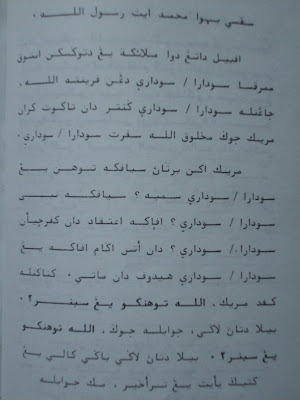 سقسي بهوا محمد ايت رسول الله .
اڤبيل داتڠ دوا ملائكة يڠ دتوڬسكن اونتوق
ممرقسا سودارا / سوداري دڠن ڤرينته الله،
جاڠنله سودارا / سوداري ڬنتر دان تاكوت كران
مريك جوݢ مخلوق الله سڤرت سودارا / سوداري.
مريك اكن برتاڽ سياڤكه توهن يڠ
سودارا / سوداري سمبه ؟ سياڤكه نبي
سودارا / سوداري ؟ اڤاكه اعتقاد دان كڤرچيأن
سودارا / سوداري ؟ دان اتس اݢام اڤاكه يڠ
سودارا / سوداري هيدوڤ دان ماتي. كتاكنله
كڤد مريك، الله توهنكو يڠ سبنر٢.
بيلا دتاڽ لاݢي، جوابله جوݢ، الله توهنكو
يڠ سبنر٢. بيلا دتاڽ لاݢي باݢي كالي يڠ
كتيݢ يأيت يڠ ترأخير، مك جوابله